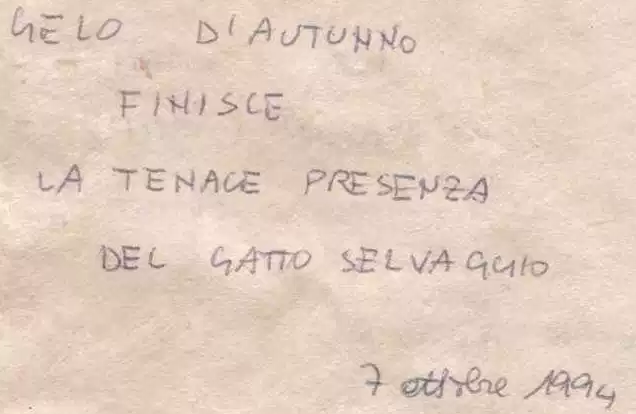 GELO D'AUTUNNO
FINISCE
LA TENACE PRESENZA
DEL GATTO SELVAGGIO
7 ottobre 1994